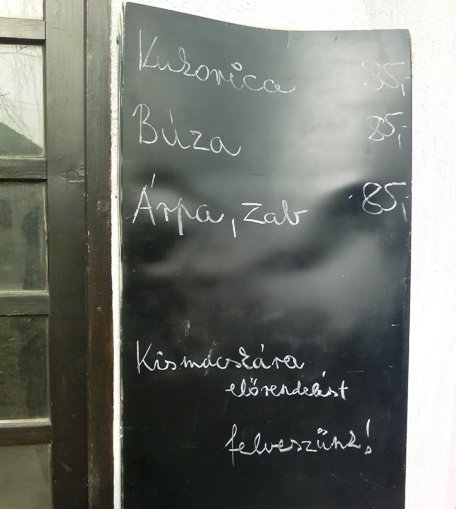 Kukorica
Búza 85,-
Árpa, zab 85,-
Kismacskára
előrendelést
felveszünk!